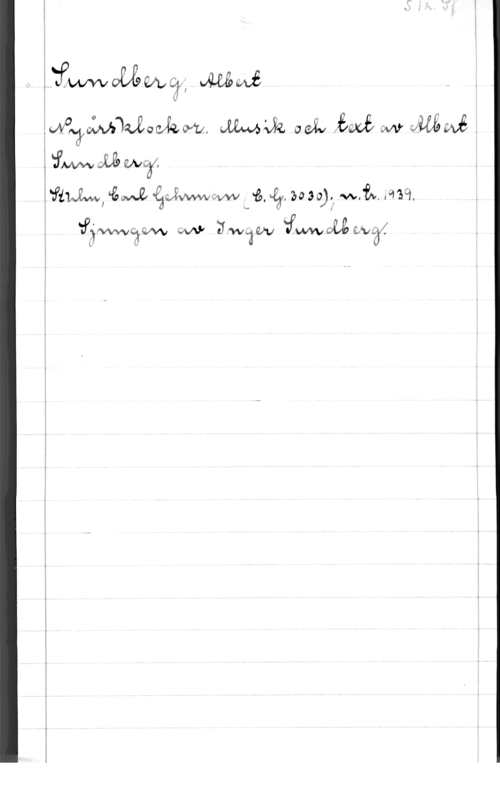 Sundberg, Albert
Nyårsklockor. Musik och text av Albert
Sundberg.
Sthlm, Carl Gehrman (C. G. 3030); n. tr. 1939.
Sjungen av Inger Sundberg.